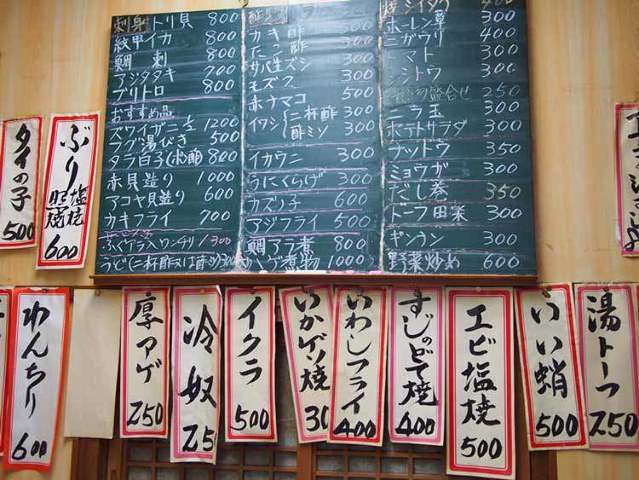 刺身トリ貝 800
紋甲イカ 800
鯛 刺 800
アジタタキ 700
ブリトロ 800
おすすめ品
ズワイガニ 1200
フグ湯びき 500
タラ白子(ポン酢) 800
赤貝造り 1000
アコヤ貝造り 600
カキフライ 700
ふぐアラ 1300
うど(二杯酢又は酢
カキ酢 300
たこ酢 300
サバ生ズシ 300
モズク 300
赤ナマコ 500
イワシ 二杯酢 300
酢ミソ
イカウニ 300
うにくらげ 300
カズノ子 600
アジフライ 500
鯛アラ煮 800
煮物 1000
焼シイタケ 400
ホーレン草 300
ニガウリ 400
トマト 300
シシトウ 300
盛合せ 250
ニラ玉 300
ポテトサラダ 300
ナットウ 350
ミョウガ 300
だし巻 350
トーフ田楽 300
ギンナン 300
野菜炒め 600
タイの子 500
ぶり 塩焼 照焼 600
わんちり 600
厚アゲ 250
冷奴 25
イクラ 500
いかゲソ焼 30
いわしフライ 400
すじのどて焼 400
エビ塩焼 500
いい蛸 500
湯トーフ 250